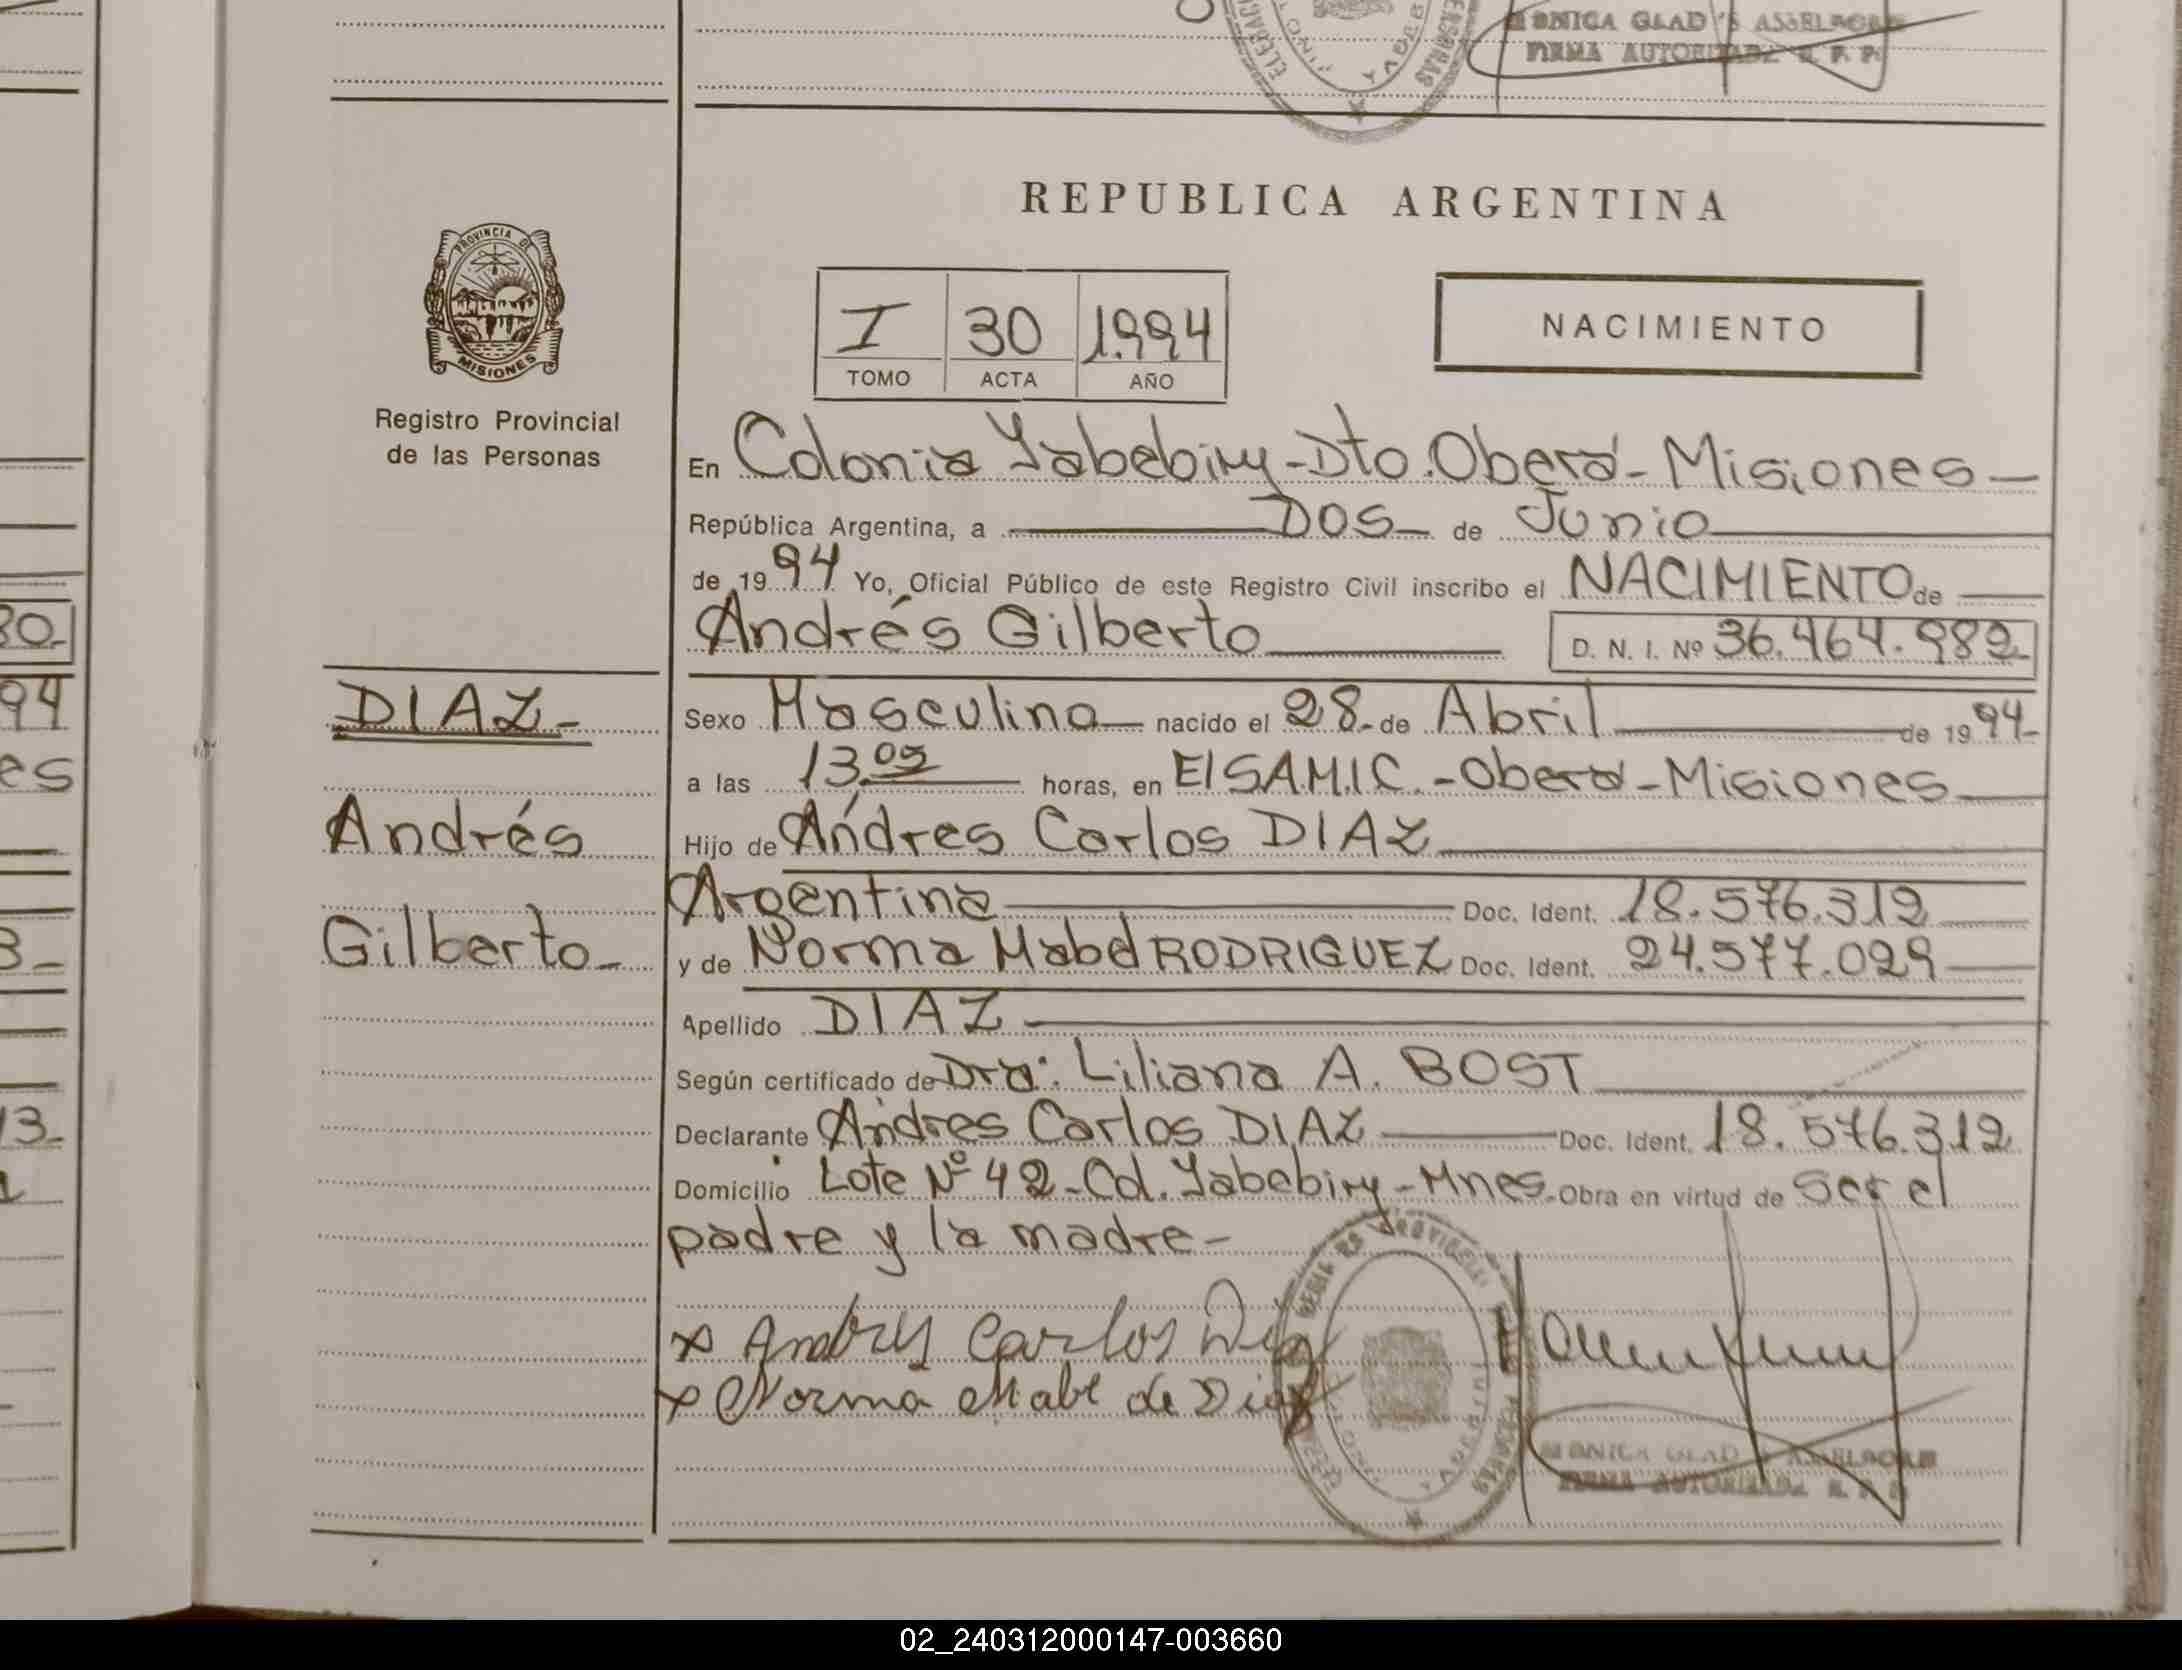 MONICA GLADYS ASSELBORN
FIRMA AUTORIZADA R. P. P.
REPUBLICA ARGENTINA
PROVINCIA DE
MISIONES
Registro Provincial
de las Personas
I 30 1.994
TOMO ACTA AÑO
NACIMIENTO
En Colonia Yabebiry-Dto.Oberá-Misiones
República Argentina, a DOS de Junio
de 1994 Yo, Oficial Público de este Registro Civil inscribo el NACIMIENTO de
Andrés Gilberto D. N. I. Nº 36.464.982
DIAZ-
Andrés
Gilberto-
Sexo Masculino nacido el 28- de Abril de 1994-
a las 13,05 horas, en El S.A.M.I.C.-Oberá-Misiones
Hijo de Andres Carlos DIAZ
Argentina Doc. Ident. 18.576.312
y de Norma Mabel RODRIGUEZ Doc. Ident. 24.577.029
Apellido DIAZ
Según certificado de Dra: Liliana A. BOST
Declarante Andres Carlos DIAZ Doc. Ident. 18.576.312
Domicilio Lote Nº 42-Col.Yabebiry-Mnes. Obra en virtud de ser el
padre y la madre-
x Andres Carlos Diaz
x Norma Mabel de Diaz
MONICA GLADYS ASSELBORN
FIRMA AUTORIZADA R. P. P.
30-
94
es
3-
13-
02_240312000147-003660